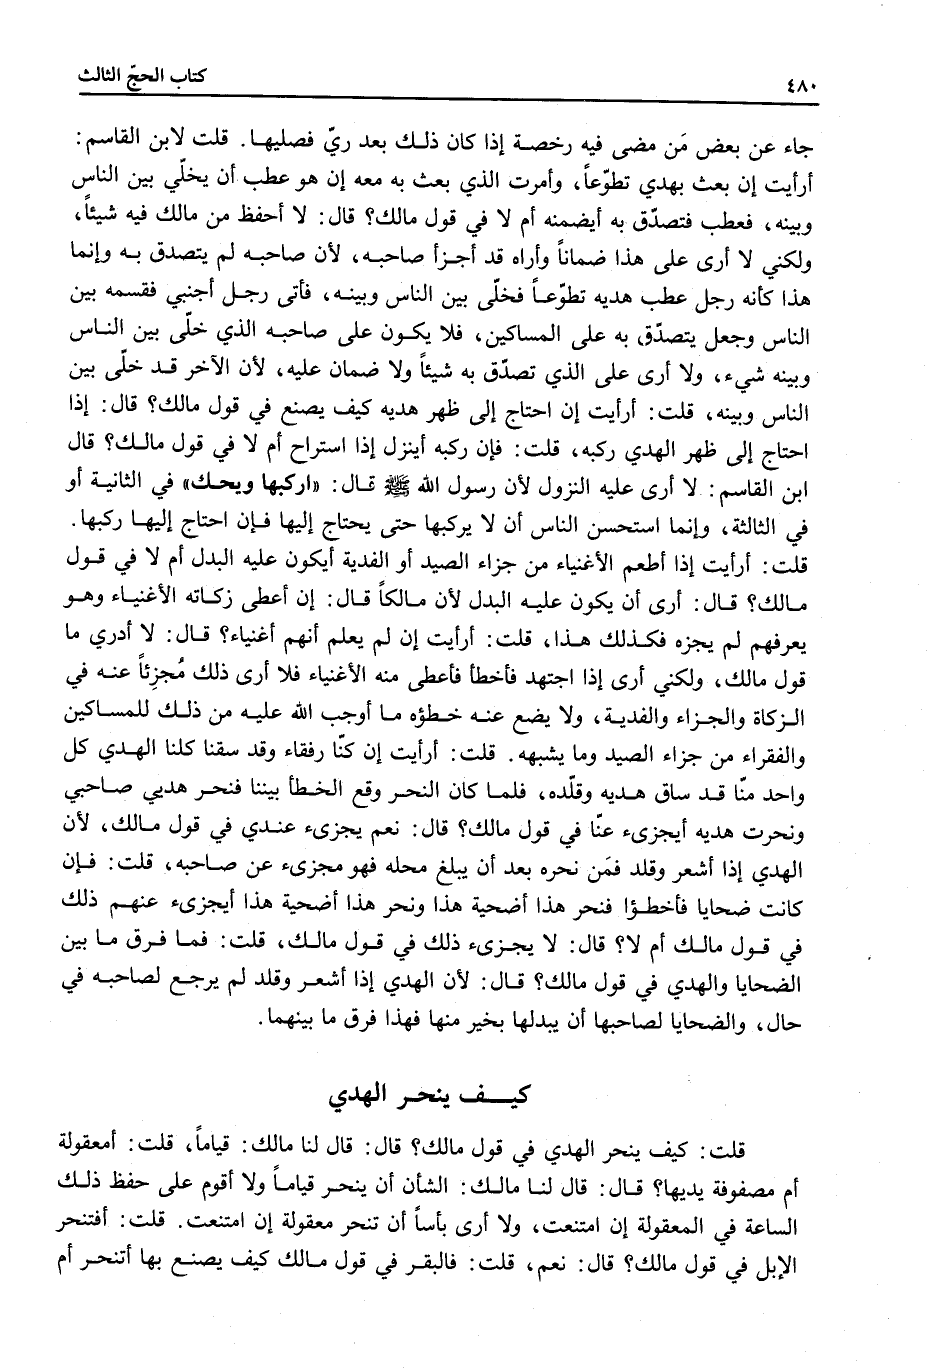 ٤٨٠ كتاب الحجّ الثالث
جاء عن بعض مَن مضى فيه رخصة إذا كان ذلك بعد ريّ فصليها. قلت لابن القاسم:
أرأيت إن بعث بهدي تطوّعاً، وأمرت الذي بعث به معه إن هو عطب أن يخلّي بين الناس
وبينه، فعطب فتصدّق به أيضمنه أم لا في قول مالك؟ قال: لا أحفظ من مالك فيه شيئاً،
ولكني لا أرى على هذا ضماناً وأراه قد أجزأ صاحبه، لأن صاحبه لم يتصدق به وإنما
هذا كأنه رجل عطب هديه تطوّعاً فخلّى بين الناس وبينه، فأتى رجل أجنبي فقسمه بين
الناس وجعل يتصدّق به على المساكين، فلا يكون على صاحبه الذي خلّى بين الناس
وبينه شيء، ولا أرى على الذي تصدّق به شيئاً ولا ضمان عليه، لأن الآخر قد خلّى بين
الناس وبينه، قلت: أرأيت إن احتاج إلى ظهر هديه كيف يصنع في قول مالك؟ قال: إذا
احتاج إلى ظهر الهدي ركبه، قلت: فإن ركبه أينزل إذا استراح أم لا في قول مالك؟ قال
ابن القاسم: لا أرى عليه النزول لأن رسول الله ﷺ قال: «اركبها ويحك» في الثانية أو
في الثالثة، وإنما استحسن الناس أن لا يركبها حتى يحتاج إليها فإن احتاج إليها ركبها.
قلت: أرأيت إذا أطعم الأغنياء من جزاء الصيد أو الفدية أيكون عليه البدل أم لا في قول
مالك؟ قال: أرى أن يكون عليه البدل لأن مالكاً قال: إن أعطى زكاته الأغنياء وهو
يعرفهم لم يجزه فكذلك هذا، قلت: أرأيت إن لم يعلم أنهم أغنياء؟ قال: لا أدري ما
قول مالك، ولكني أرى إذا اجتهد فأخطأ فأعطى منه الأغنياء فلا أرى ذلك مُجزِئاً عنه في
الزكاة والجزاء والفدية، ولا يضع عنه خطؤه ما أوجب الله عليه من ذلك للمساكين
والفقراء من جزاء الصيد وما يشبهه. قلت: أرأيت إن كنّا رفقاء وقد سقنا كلنا الهدي كل
واحد منّا قد ساق هديه وقلّده، فلما كان النحر وقع الخطأ بيننا فنحر هديي صاحبي
ونحرت هديه أيجزىء عنّا في قول مالك؟ قال: نعم يجزىء عندي في قول مالك، لأن
الهدي إذا أشعر وقلد فمَن نحره بعد أن يبلغ محله فهو مجزىء عن صاحبه، قلت: فإن
كانت ضحايا فأخطؤا فنحر هذا أضحية هذا ونحر هذا أضحية هذا أيجزىء عنهم ذلك
في قول مالك أم لا؟ قال: لا يجزىء ذلك في قول مالك، قلت: فما فرق ما بين
الضحايا والهدي في قول مالك؟ قال: لأن الهدي إذا أشعر وقلد لم يرجع لصاحبه في
حال، والضحايا لصاحبها أن يبدلها بخير منها فهذا فرق ما بينهما.
كيف ينحر الهدي
قلت: كيف ينحر الهدي في قول مالك؟ قال: قال لنا مالك: قياماً، قلت: أمعقولة
أم مصفوفة يديها؟ قال: قال لنا مالك: الشأن أن ينحر قياماً ولا أقوم على حفظ ذلك
الساعة في المعقولة إن امتنعت، ولا أرى بأساً أن تنحر معقولة إن امتنعت. قلت: أفتنحر
الإبل في قول مالك؟ قال: نعم، قلت: فالبقر في قول مالك كيف يصنع بها أتنحر أم